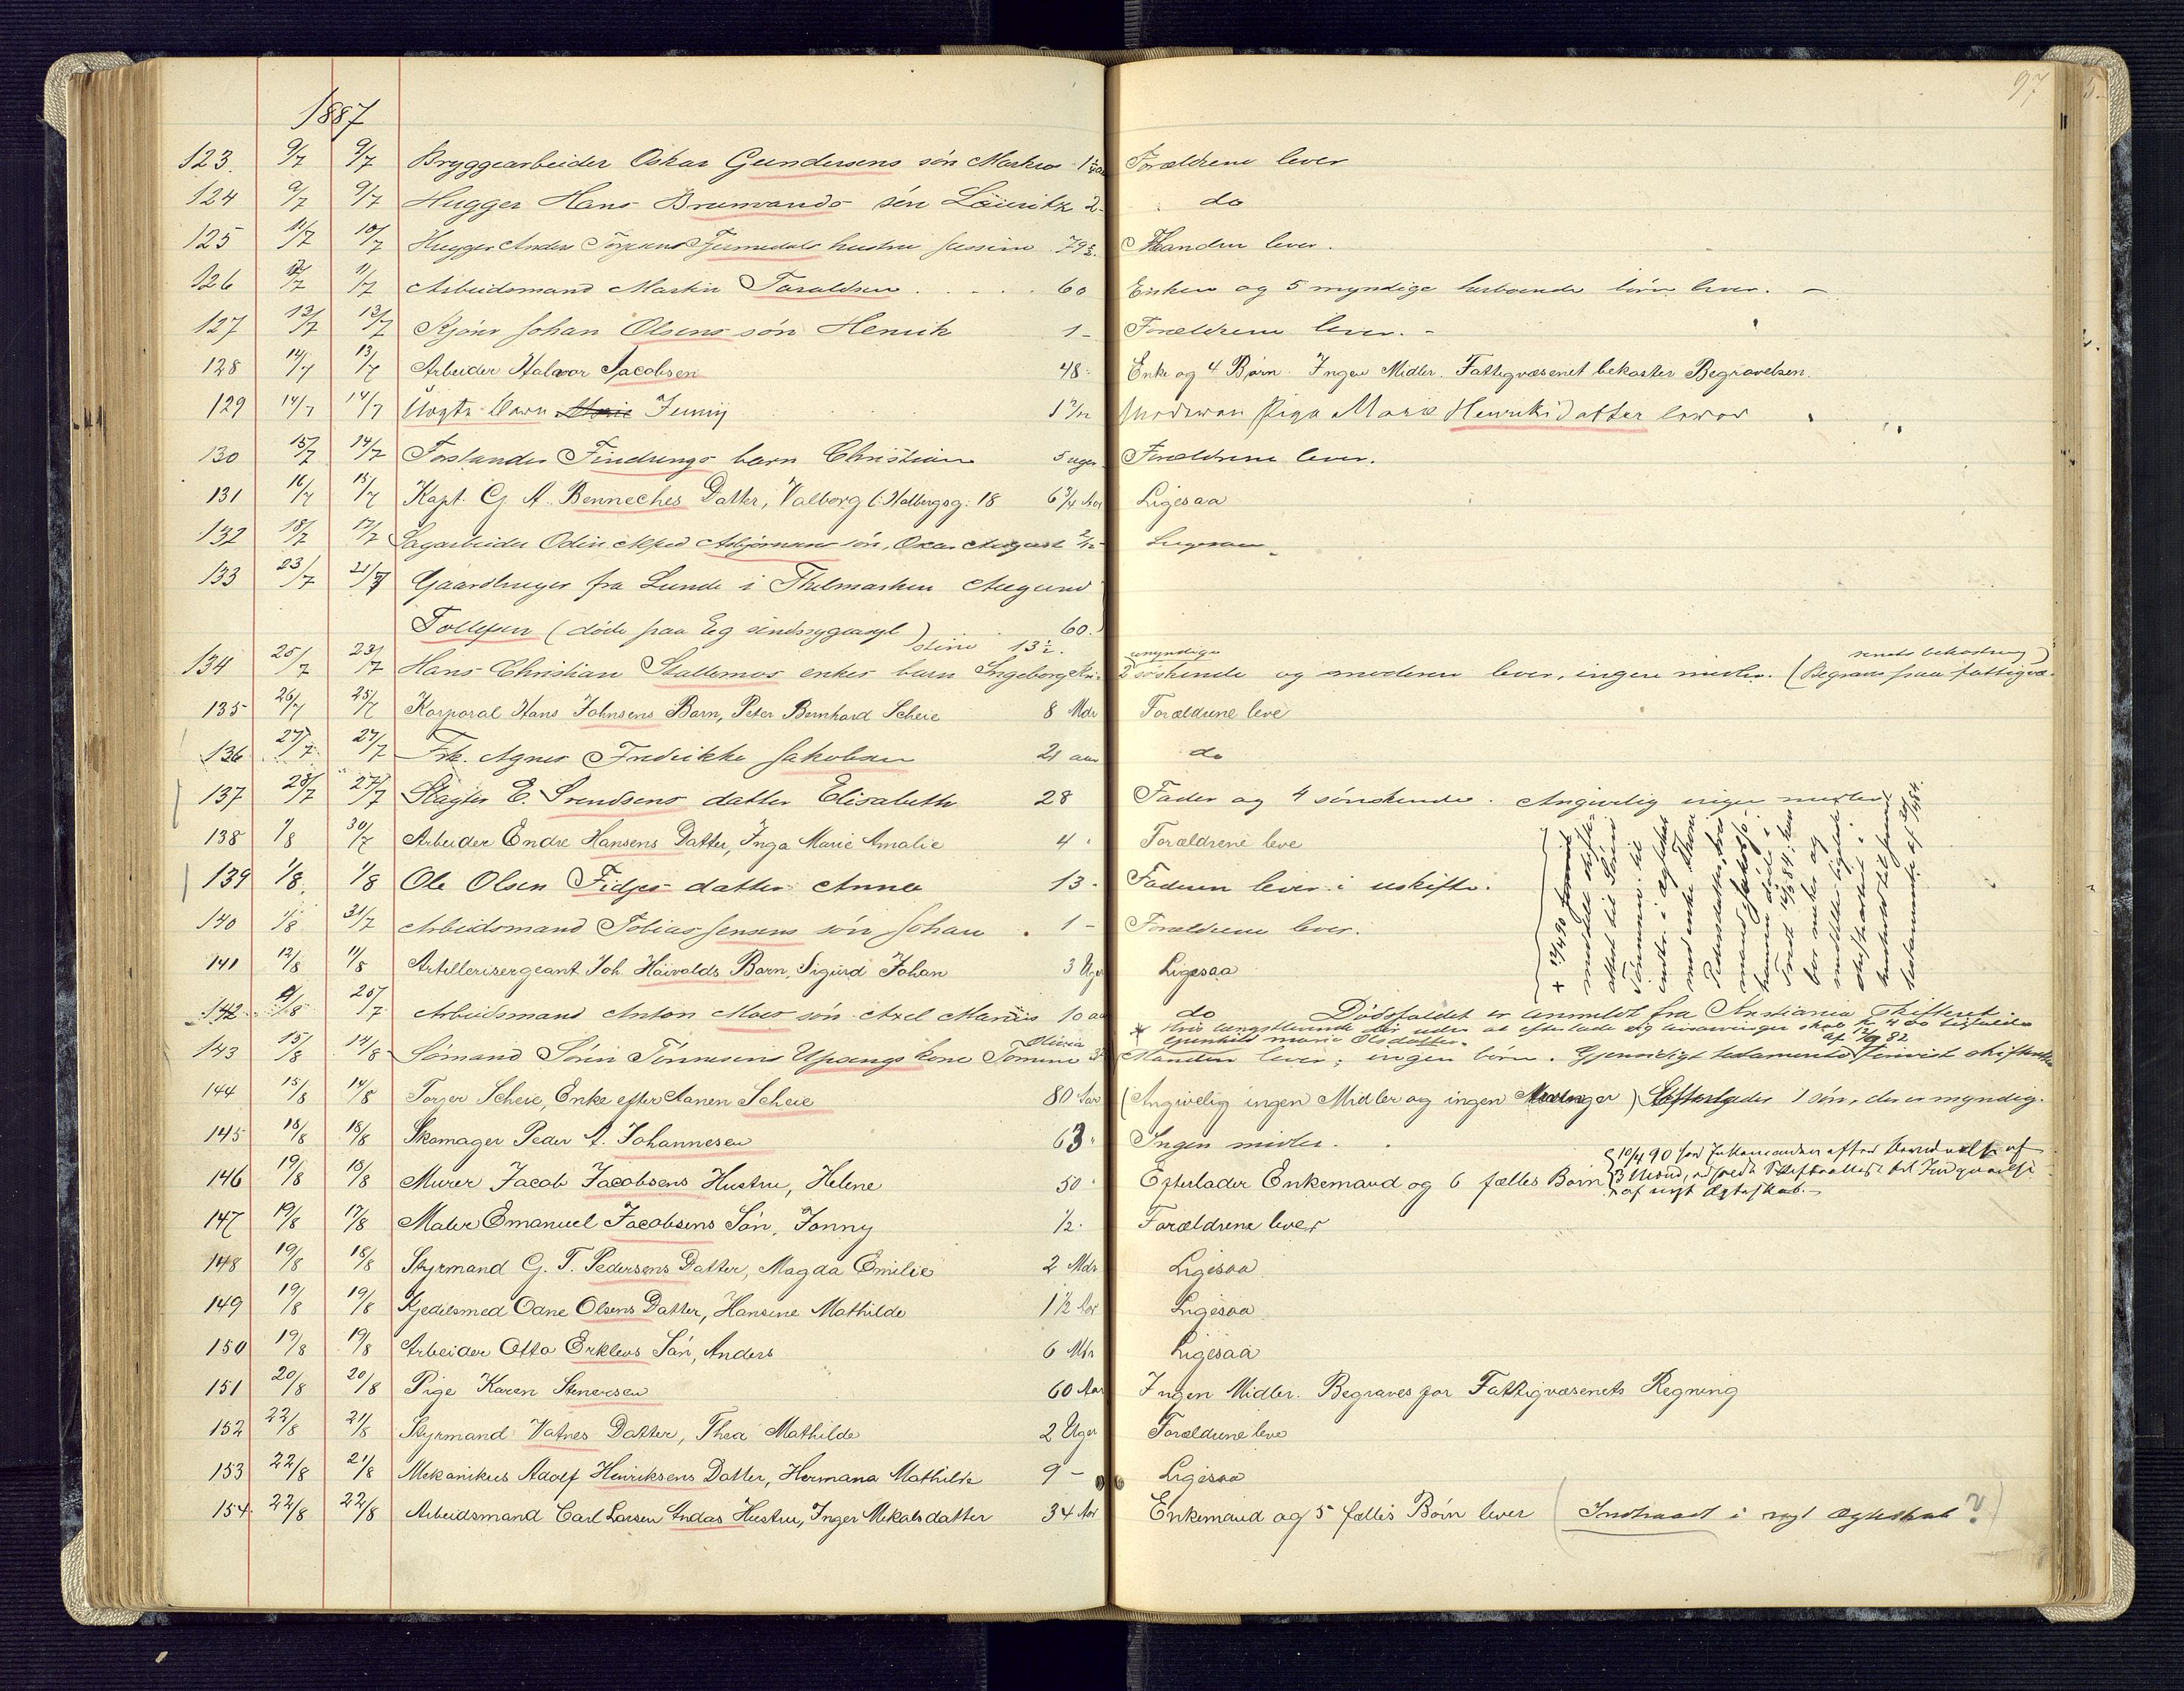 97
1887
123. 9/7 9/7 Bryggearbeider Oskar Gundersens søn 1 1/4 aar Forældrene lever
124 9/7 9/7 Hugger Hans Brunvands søn Lauritz 2 - do
125 11/7 10/7 Hugger Anders hustru 79 1/2. Manden lever.
126 12/7 11/7 Arbeidsmand Martin Taraldsen 60 Enken og 5 myndige børn lever. -
127 12/7 12/7 Johan Olsens søn Henrik 1 - Forældrene lever. -
128 14/7 13/7 Arbeider Halvor Jacobsen 48 Enke og 4 Børn. Ingen Midler. Fattigvæsenet bekoster Begravelsen.
129 14/7 14/7 Uægte Barn Marie Jenny 1 2/12 Moderen Pige Marie Henriksdatter lever
130 15/7 14/7 Findrengs barn Christian 5 uger Forældrene lever.
131 16/7 15/7 Kapt. G. A. Benneches Datter, Valborg (: Holbergsg. 18 6 3/4 Aar Ligesaa
132 18/7 17/7 Sagarbeider Odin Alfred Asbjørnsens søn, Oscar August 2/12 Ligesaa
133 23/7 21/7 Gaardbruger fra Lunde i Thelemarken Augund
Tollefsen (døde paa Eg sindsygeasyl) 60.
stine 13 1/2. umyndige senets bekostning)
134 25/7 23/7 Hans Christian Stallemos enkes barn Ingeborg Kri- 2 søskende og moderen lever, ingen midler. (Begraves paa fattigvæ-
135 26/7 25/7 Korporal Hans Johnsens Barn, Peter Bernhard Scheie 8 Mdr Forældrene leve
136 27/7 27/7 Frk. Agnes Fredrikke Jakobsen 21 aar do
137 28/7 27/7 Slagter E. Svendsens datter Elisabeth 28 Fader og 4 søskende. Angivelig ingen midler
138 1/8 30/7 Arbeider Endre Hansens Datter, Inga Marie Amalie 4 " Forældrene leve
139 1/8. 1/8 Ole Olsen Fidjes datter Anna 13 - Faderen lever i uskifte.
140 1/8 31/7 Arbeidsmand Tobias Jensens søn Johan 1 - Forældrene lever.
141 12/8 11/8 Artillerisergeant Joh. Høivolds Barn, Sigurd Johan 3 Uger Ligesaa
142 4/8 20/7 Arbeidsmand Anton Moes søn Axel Marius 10 aar do Dødsfaldet er anmeldt fra Kristiania Skifteret
Gunhild Marie Olsdatter. af 12/9 82
143 15/8 12/8 Sømand Søren Tønnesens Upsengs kone Tomine Manden lever; ingen børn. Gjensidigt testamente
144 15/8 14/8 Torjer Scheie, Enke efter Aanen Scheie 80 Aar (Angivelig ingen Midler og ingen ) Efterlader 1 søn, der er myndig.
145 18/8 18/8 Skomager Peder A. Johannesen 63 " Ingen midler.
146 19/8 18/8 Murer Jacob Jacobsens Hustru, Helene 50 " Efterlader Enkemand og 6 fælles Børn
10/4 90 har Enkemanden
af nyt Ægteskab. -
147 19/8 17/8 Maler Emanuel Jacobsens Søn, Jonny 1/2. Forældrene lever
148 19/8 18/8 Styrmand G. T. Pedersens Datter, Magda Emilie 2 Mdr Ligesaa
149 19/8 19/8 Kjedelsmed Odne Olsens Datter, Hansine Mathilde 1 1/2 Aar Ligesaa
150 19/8 19/8 Arbeider Otto Erklevs Søn, Anders 6 Mdr Ligesaa
151 20/8 20/8 Pige Karen Stenersen 60 Aar Ingen Midler. Begraves for Fattigvæsenets Regning
152 22/8 21/8 Styrmand Vatnes Datter, Thea Mathilde 2 Uger Forældrene leve
153 22/8 21/8 Mekanikus Adolf Hinriksens Datter, Hermana Mathilde 9 - Ligesaa
154. 22/8 22/8 Arbeidsmand Carl Larsen Andas Hustru, Inger Mikalsdatter 34 Aar Enkemand og 5 fælles Børn lever (Indtraadt i nyt Ægteskab?)